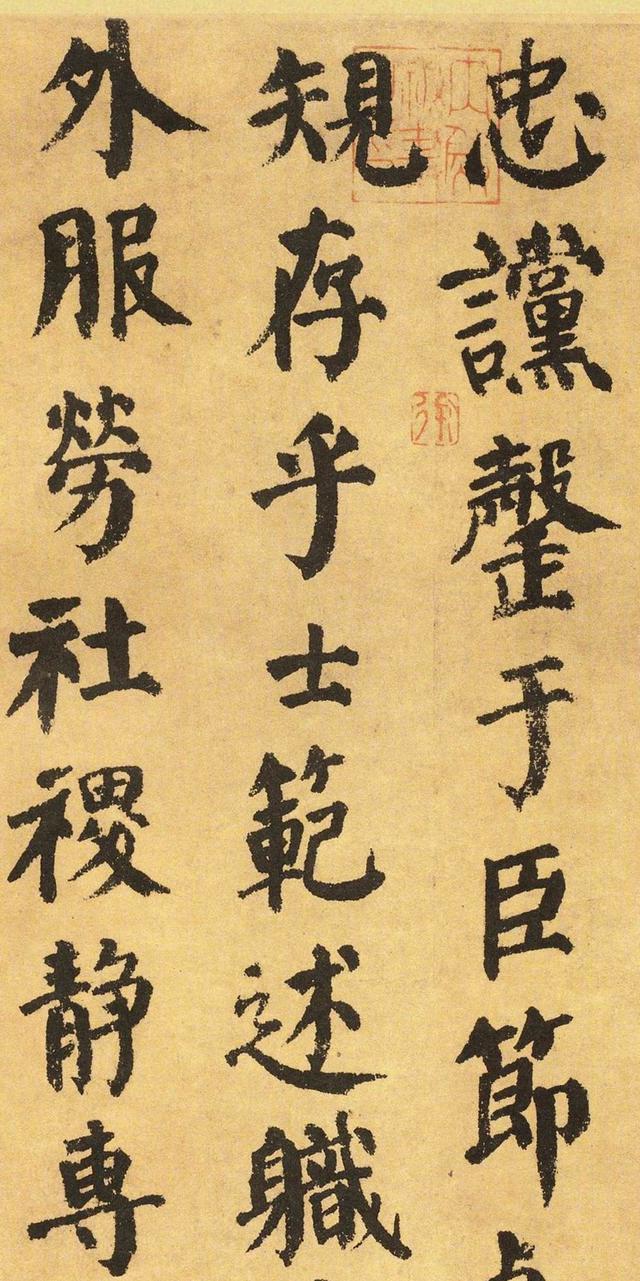 忠讜罄于臣節
規存乎士範述職
外服勞社稷静專